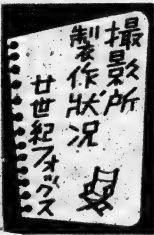 撮影所
製作狀況
廿世紀フォックス